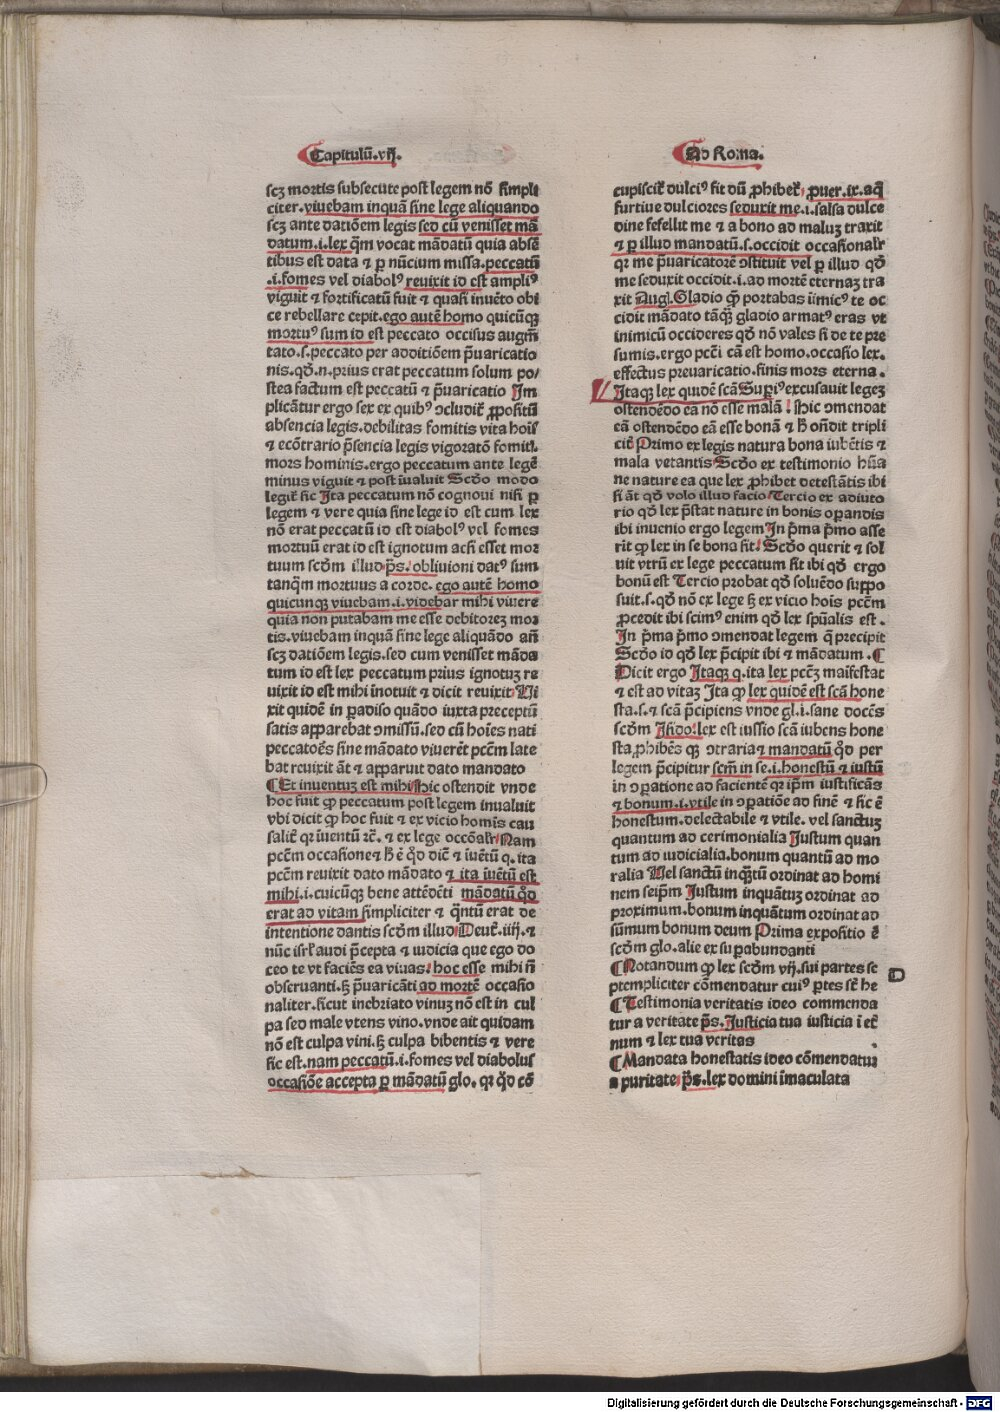 Capitulū.vij.
scꝫ mortis subsecute post legem nō simpli
citer.viuebam inquā sine lege aliquando
scꝫ ante datiōem legis sed cū venisset mā
datum.i.lex qm̄ vocat mādatū quia absē
tibus est data ⁊ ꝑ nūcium missa.peccatū
.i.fomes vel diabolꝰ reuixit id est ampliꝰ
viguit ⁊ fortificatū fuit ⁊ quasi inuēto obi
ce rebellare cepit.ego autē homo quicūqꝫ
mortuꝰ sum id est peccato occisus augm̄
tato.s.peccato per additiōem p̄uaricatio
nis.qd̄.n.prius erat peccatum solum po/
stea factum est peccatū ⁊ p̄uaricatio Im
plicātur ergo sex ex quibꝰ ↄcludit᷑ ꝓpositū
absencia legis.debilitas fomitis vita hoīs
⁊ ecōtrario p̄sencia legis vigoratō fomitꝭ.
mors hominis.ergo peccatum ante legē
minus viguit ⁊ post īualuit Scd̄o modo
legit᷑ sic Ita peccatum nō cognoui nisi ꝑ
legem ⁊ vere quia sine lege id est cum lex
nō erat peccatū id est diabolꝰ vel fomes
mortuū erat id est ignotum acsi esset mor
tuum scd̄m illud p̄s. obliuioni datꝰ sum
tanqm̄ mortuus a corde. ego autē homo
quicunqꝫ viuebam.i.videbar mihi viuere
quia non putabam me esse debitoreꝫ mor
tis.viuebam inquā sine lege aliquādo an̄
scꝫ datiōem legis.sed cum venisset māda
tum id est lex peccatum prius ignotuꝫ re
uixit id est mihi īnotuit ⁊ dicit reuixit Vi
xit quidē in ꝑadiso quādo iuxta preceptū
satis apparebat ↄmissū.sed cū hoīes nati
peccatoēs sine mādato viuerēt pctm̄ late
bat reuixit āt ⁊ apparuit dato mandato
¶ Et inuentuꝫ est mihi Hic ostendit vnde
hoc fuit ꝙ peccatum post legem inualuit
vbi dicit ꝙ hoc fuit ⁊ ex vicio homīs cau
salit᷑ qꝛ īuentū ꝛc̄. ⁊ ex lege occōalr̄ Nam
pctm̄ occasioneꝫ hꝫ ē qd̄ dic̄ ⁊ īuētū q. ita
pctm̄ reuixit dato mādato ⁊ ita īuētū est
mihi.i.cuicūqꝫ bene attēdēti mādatū qd̄
erat ad vitam simpliciter ⁊ qn̄tū erat de
intentione dantis scd̄m illud Deut᷑.iiij.⁊
nūc isrl̄ audi p̄cepta ⁊ iudicia que ego do
ceo te vt faciēs ea viuas. hoc esse mihi nō
obseruanti.sꝫ p̄uaricāti ad mortē occasio
naliter.sicut inebriato vinuꝫ nō est in cul
pa sed male vtens vino.vnde ait quidam
nō est culpa vini.sꝫ culpa bibentis ⁊ vere
sic est.nam peccatū.i.fomes vel diabolus
occasiōe accepta ꝑ mādatū glo. qꝛ qd̄ cō
Ad Roma.
cupiscit᷑ dulciꝰ fit dū ꝓhibet᷑. ꝓuer.ix.aq̄
furtiue dulciores seduxit me.i.falsa dulce
dine fefellit me ⁊ a bono ad maluꝫ traxit
⁊ ꝑ illud mandatū.s.occidit occasionalr̄
qꝛ me p̄uaricatorē ↄstituit vel ꝑ illud qd̄
me seduxit occidit.i.ad mortē eternaꝫ tra
xit Augꝭ. Gladio qm̄ portabas īimicꝰ te oc
cidit mādato tāqꝫ gladio armatꝰ eras vt
inimicū occideres qd̄ nō vales si de te pre
sumis.ergo pcti cā est homo.occasio lex.
effectus preuaricatio.finis mors eterna.
Itaqꝫ lex quidē scā Supiꝰ excusauit legeꝫ
ostendēdo eā nō esse malā. Hic ↄmendat
eā ostendēdo eā esse bonā ⁊ hꝫ oñdit tripli
cit᷑ Primo ex legis natura bona iubētis ⁊
mala vetantis Scd̄o ex testimonio hūa
ne nature ea que lex ꝓhibet detestātis ibi
si āt qd̄ volo illud facio Tercio ex adiuto
rio qd̄ lex p̄stat nature in bonis oꝑandis
ibi inuenio ergo legem In p̄ma p̄mo asse
rit ꝙ lex in se bona sit. Scd̄o querit ⁊ sol
uit vtrū ex lege peccatum sit ibi qd̄ ergo
bonū est Tercio probat qd̄ soluēdo suppo
suit.s.qd̄ nō ex lege sꝫ ex vicio hoīs pctm̄
ꝓcedit ibi scimꝰ enim qd̄ lex spūalis est.
In p̄ma p̄mo ↄmendat legem q̄ precipit
Scd̄o id qd̄ lex p̄cipit ibi ⁊ mādatum. ¶
Dicit ergo Itaqꝫ q. ita lex pctꝫ maīfestat
⁊ est ad vitaꝫ Ita ꝙ lex quidē est scā hone
sta.s.⁊ scā p̄cipiens vnde gl.i.sane docēs
scd̄m Isido. lex est iussio scā iubens hone
sta ꝓhibēs qꝫ ↄtraria ⁊ mandatū qd̄ per
legem p̄cipitur scm̄ in se.i.honestū ⁊ iustū
in ↄꝑatione ad facientē qꝛ ipm̄ iustificās
⁊ bonum.i.vtile in ↄꝑatiōe ad finē ⁊ sic ē
honestum.delectabile ⁊ vtile. vel sanctuꝫ
quantum ad cerimonialia Iustum quan
tum ad iudicialia.bonum quantū ad mo
ralia Vel sanctū inqꝫtū ordinat ad homi
nem seipm̄ Iustum inquātuꝫ ordinat ad
proximum.bonum inquātum ordinat ad
sūmum bonum deum Prima expositio ē
scd̄m glo.alie ex suꝑabundanti
¶ Notandum ꝙ lex scd̄m vij.sui partes se
ptempliciter cōmendatur cuiꝰ ꝑtes sūt he
¶ Testimonia veritatis ideo commenda
tur a veritate p̄s. Iusticia tua iusticia ī et᷑
num ⁊ lex tua veritas
¶ Mandata honestatis ideo cōmendatur
a puritate p̄s.lex domini īmaculata
D
Digitalisierung gefördert durch die Deutsche Forschungsgemeinschaft - DFG